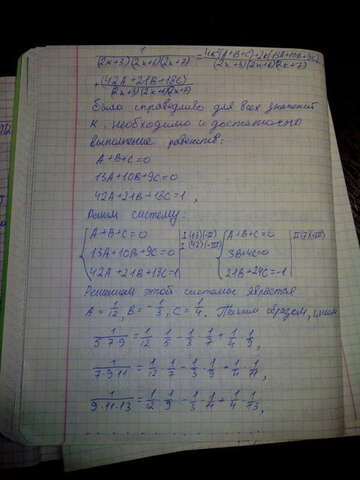 1/(2к+3)(2к+6)(2к+7) = 4к²(A+B+C)+2к(13A+10B+9C)/(2к+3)(2к+6)(2к+7)
(42A+21B+18C)/(2к+3)(2к+6)(2к+7)
Было справедливо для всех значений
к, необходимо и достаточно
выполнение равенств:
A+B+C=0
13A+10B+9C=0
42A+21B+18C=1,
Решим систему:
A+B+C=0 | I(13)(-II) | A+B+C=0 | II(7)(-III)
13A+10B+9C=0 | I(42)(-III) | 3B+4C=0
42A+21B+18C=1 | 21B+24C=-1
Решением этой системы является
A=1/12, B=-1/3, C=1/4. Таким образом,
1/5·7·9 = 1/12·1/5 - 1/3·1/7 + 1/4·1/9
1/7·9·11 = 1/12·1/7 - 1/3·1/9 + 1/4·1/11,
1/9·11·13 = 1/12·1/9 - 1/3·1/11 + 1/4·1/13,